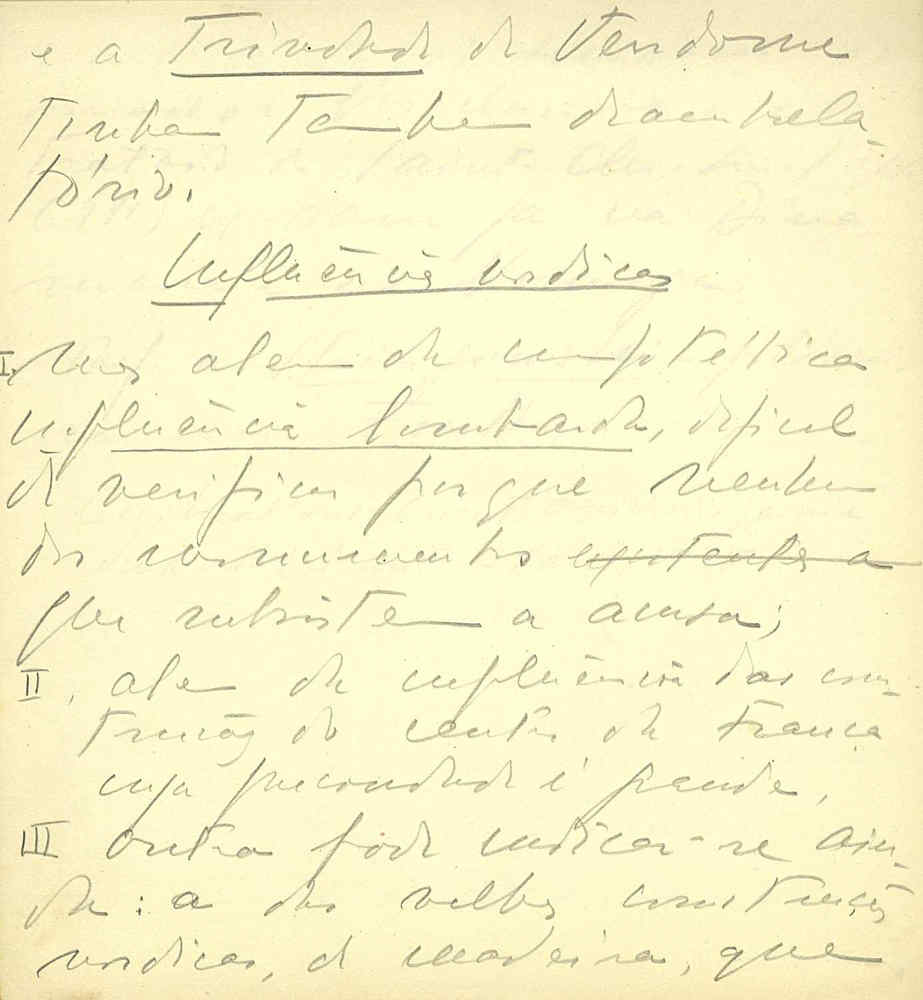 e a Trindade de Vendome
tinha tambem deambula-
tório.
Influência nordicas
I. Mas alem da hipotética
influência lombarda, dificil
de verificar porque nenhum
dos monumentos existentes a
que subsistem a acusa;
II, alem da influência das cons-
truções do centro da França
cuja fecundidade é grande,
III outra pode indicar-se ain-
da: a das velhas construções
nordicas, de madeira, que